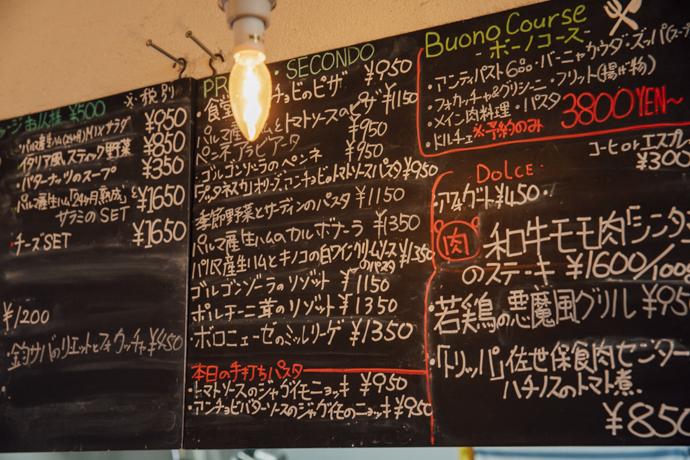 ※税別
ャージ お1人様 ¥500
・パルマ産生ハム(24ヶ月)MIXサラダ ¥950
イタリア風スティック野菜 ¥850
・バターナッツのスープ ¥350
パルマ産生ハム「24ヶ月熟成」と ¥1650
サラミのSET
・チーズSET ¥1650
¥1200
・釣サバのリエットとフォカッチャ ¥450
SECONDO
チョビのピザ ¥950
パルマ産生ハムとトマトソースのピザ ¥1150
ペンネアラビアータ ¥950
ゴルゴンゾーラのペンネ ¥950
プッタネスカ(オリーブ・アンチョビのトマトソースパスタ ¥950
季節野菜とサーディンのパスタ ¥1150
パルマ産生ハムのカルボナーラ ¥1350
パルマ産生ハムとキノコの白ワインクリームソース ¥1350
のパスタ
ゴルゴンゾーラのリゾット ¥1150
・ポルチーニ茸のリゾット ¥1350
・ボロニューゼのミルリーゲ ¥1350
本日の手打ちパスタ
・トマトソースのジャガイモニョッキ ¥950
・アンチョビバターソースのジャガイモのニョッキ ¥950
Buono Course
-ボーノコース-
・アンティパスト6品・バーニャカウダ・ズッパ(スープ
・フォカッチャ&グリッシーニ・フリット(揚げ物)
・メイン肉料理・パスタ
・ドルチェ ※予約のみ 3800YEN〜
コーヒー or エスプレ
¥300
・DOLCE・
・アフォガート ¥450・
肉 和牛モモ肉「シンタ
のステーキ ¥1600/100g
・若鶏の悪魔風グリル ¥95
・「トリッパ」佐世保食肉センター
ハチノスのトマト煮.
¥850